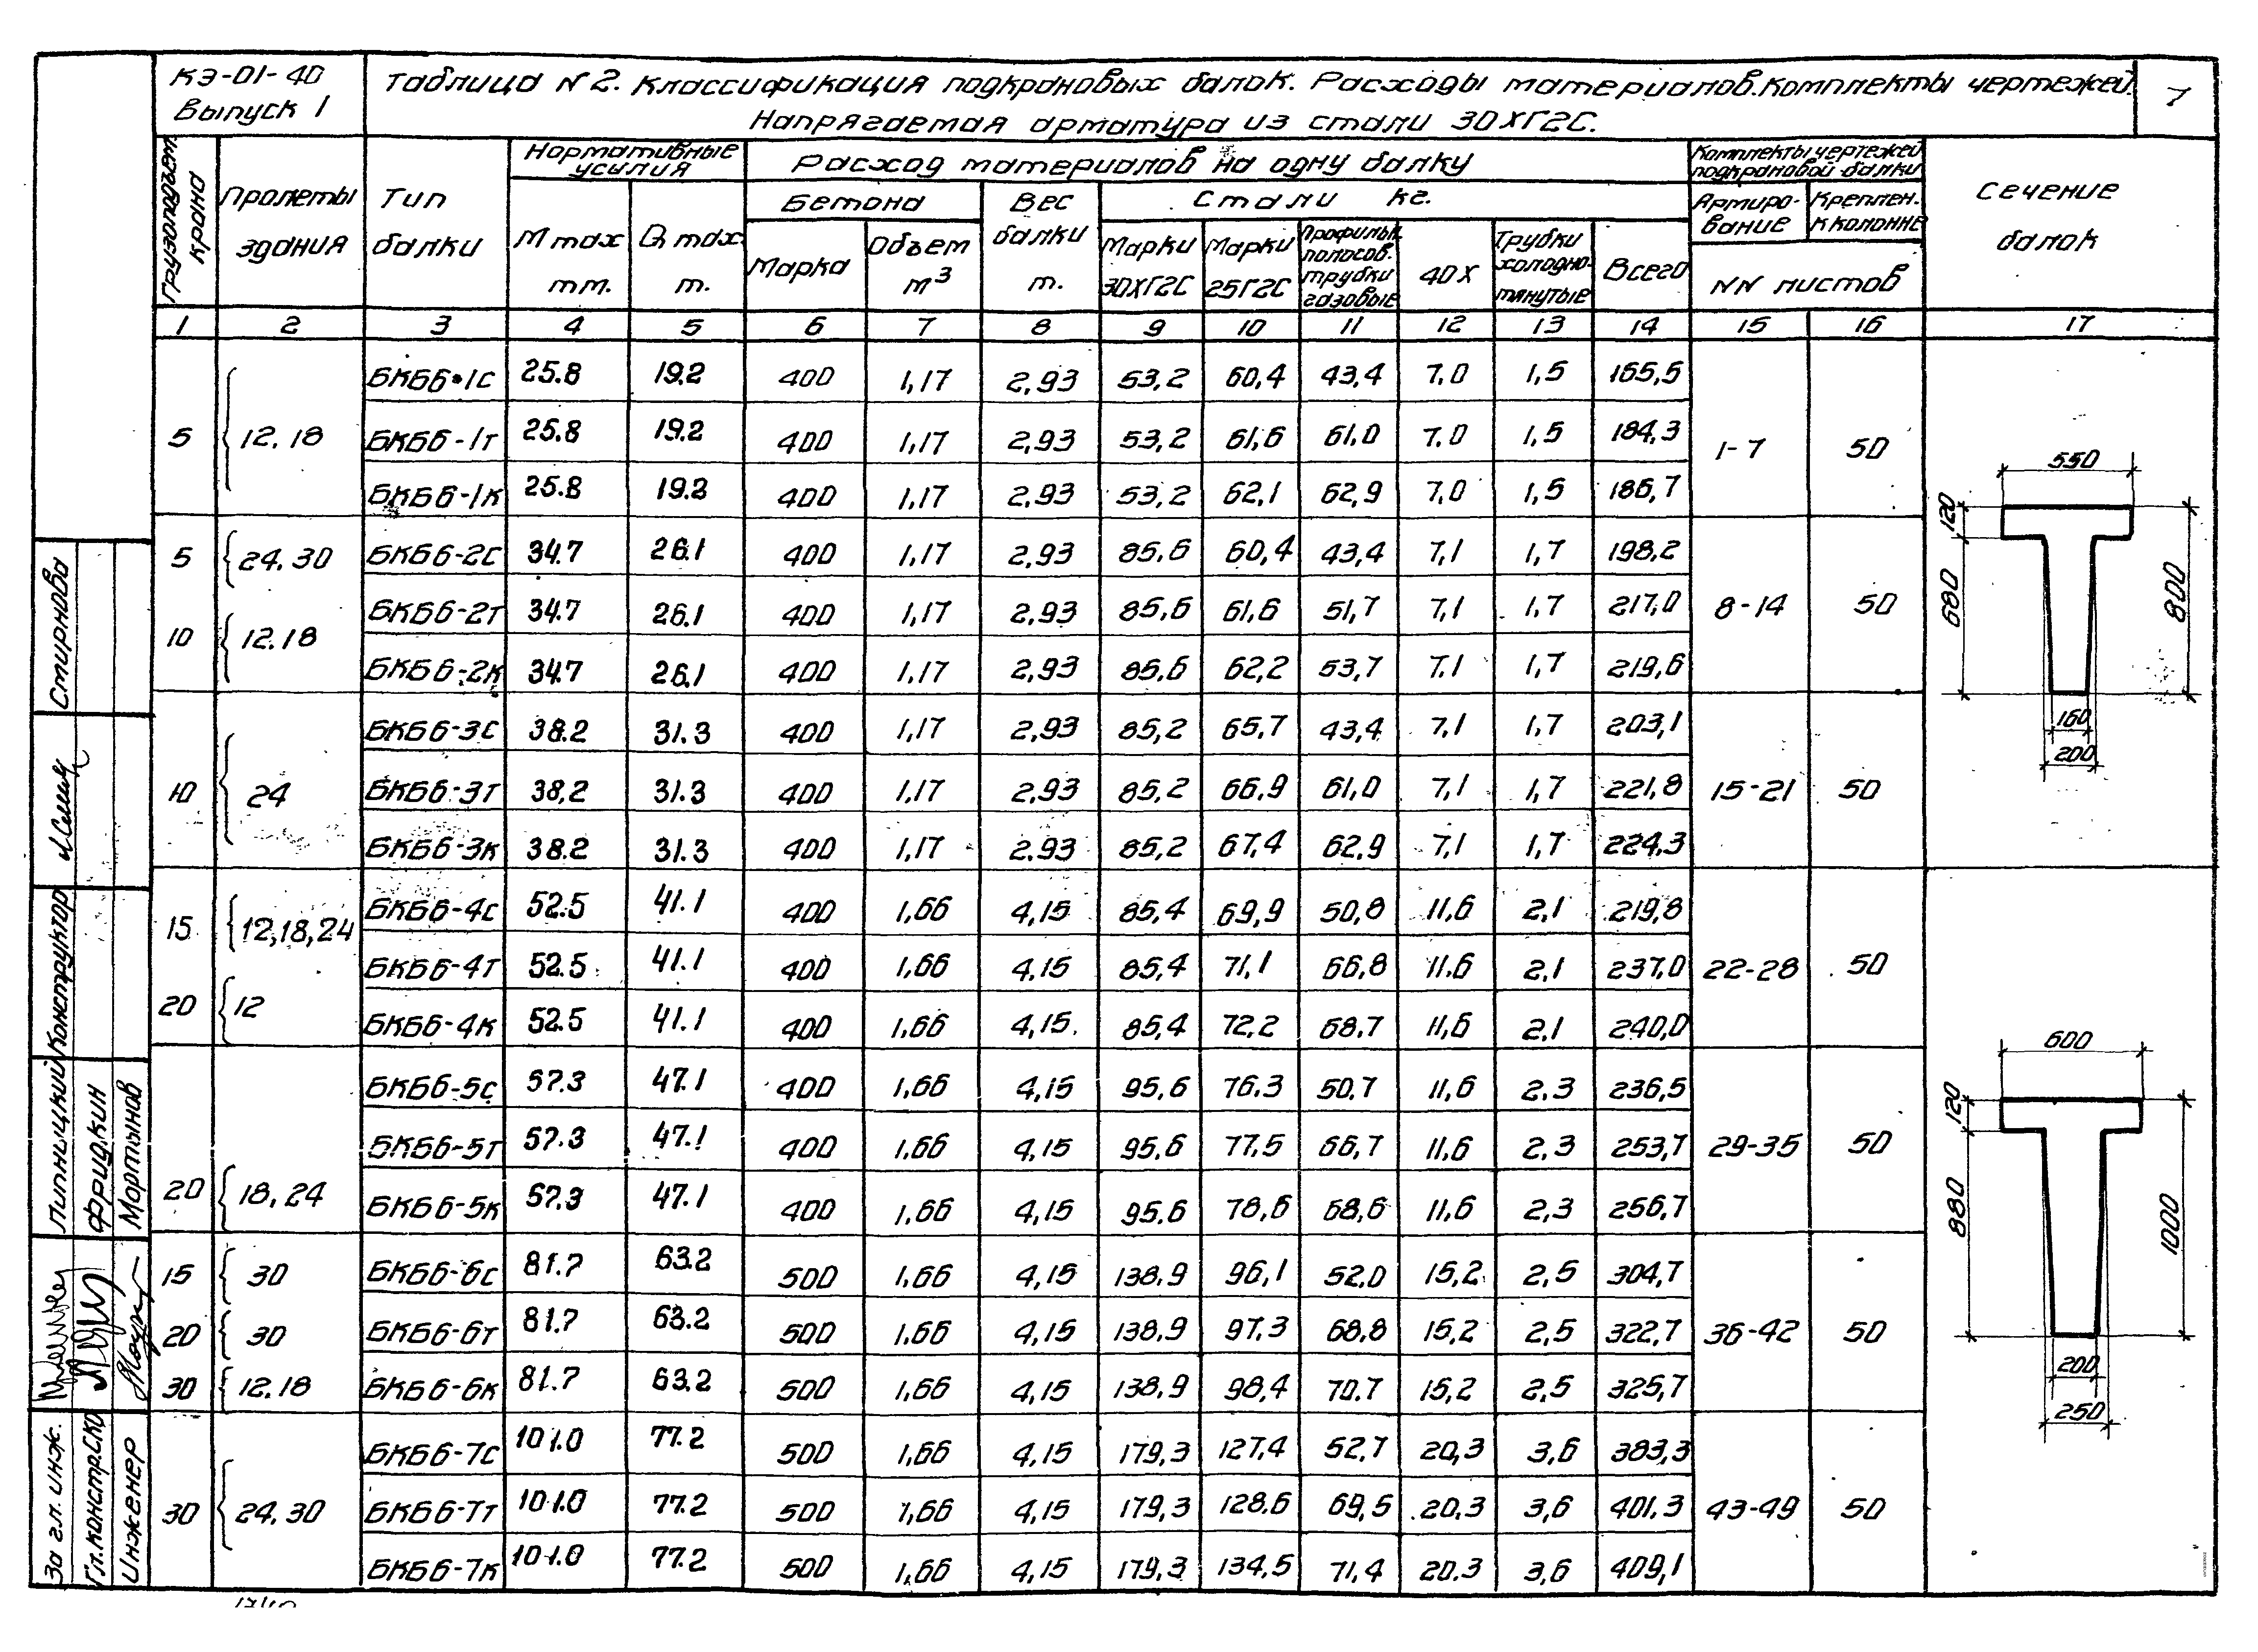 КЭ-01-40
Выпуск 1
Таблица N 2. Классификация подкрановых балок. Расходы материалов. Комплекты чертежей.
Напрягаемая арматура из стали 30ХГ2С.
7
Грузоподъем. крана
Пролеты здания
Тип балки
Нормативные усилия
M max тм.
Q max. т.
Расход материалов на одну балку
Бетона
Марка
Объем м³
Вес балки т.
Стали кг.
Марки 30ХГ2С
Марки 25Г2С
Профильн. полосов. трубки газовые
40Х
Трубки холодно-тянутые
Всего
Комплекты чертежей подкрановой балки
Армиро-вание
Креплен. к колонне
NN листов
Сечение балок
1 2 3 4 5 6 7 8 9 10 11 12 13 14 15 16 17
5 12.18 БКБ6-1с 25.8 19.2 400 1,17 2,93 53,2 60,4 43,4 7,0 1,5 165,5
БКБ6-1т 25.8 19.2 400 1,17 2,93 53,2 61,6 61,0 7,0 1,5 184,3 1-7 50
БКБ6-1к 25.8 19.2 400 1,17 2,93 53,2 62,1 62,9 7,0 1,5 186,7
5 24.30 БКБ6-2с 34.7 26.1 400 1,17 2,93 85,6 60,4 43,4 7,1 1,7 198,2
10 12.18 БКБ6-2т 34.7 26.1 400 1,17 2,93 85,6 61,6 51,7 7,1 1,7 217,0 8-14 50
БКБ6-2к 34.7 26.1 400 1,17 2,93 85,6 62,2 53,7 7,1 1,7 219,6
БКБ6-3с 38.2 31.3 400 1,17 2,93 85,2 65,7 43,4 7,1 1,7 203,1
10 24 БКБ6-3т 38,2 31.3 400 1,17 2,93 85,2 66,9 61,0 7,1 1,7 221,8 15-21 50
БКБ6-3к 38.2 31.3 400 1,17 2.93 85,2 67,4 62,9 7,1 1,7 224,3
15 12,18,24 БКБ6-4с 52.5 41.1 400 1,66 4,15 85,4 69,9 50,8 11,6 2,1 219,8
БКБ6-4т 52.5 41.1 400 1,66 4,15 85,4 71,1 66,8 11,6 2,1 237,0 22-28 50
20 12 БКБ6-4к 52.5 41.1 400 1,66 4,15 85,4 72,2 68,7 11,6 2,1 240,0
БКБ6-5с 57.3 47.1 400 1,66 4,15 95,6 76,3 50,7 11,6 2,3 236,5
БКБ6-5т 57.3 47.1 400 1,66 4,15 95,6 77,5 66,7 11,6 2,3 253,7 29-35 50
20 18,24 БКБ6-5к 57.3 47.1 400 1,66 4,15 95,6 78,6 68,6 11,6 2,3 256,7
15 30 БКБ6-6с 81.7 63.2 500 1,66 4,15 138,9 96,1 52,0 15,2 2,5 304,7
20 30 БКБ6-6т 81.7 63.2 500 1,66 4,15 138,9 97,3 68,8 15,2 2,5 322,7 36-42 50
30 12.18 БКБ6-6к 81.7 63.2 500 1,66 4,15 138,9 98,4 70,7 15,2 2,5 325,7
БКБ6-7с 101.0 77.2 500 1,66 4,15 179,3 127,4 52,7 20,3 3,6 383,3
30 24.30 БКБ6-7т 101.0 77.2 500 1,66 4,15 179,3 128,6 69,5 20,3 3,6 401,3 43-49 50
БКБ6-7к 101.0 77.2 500 1,66 4,15 179,3 134,5 71,4 20.3 3,6 409,1
550
120
680
800
160
200
600
120
880
1000
200
250
Смирнова
Конструктор
Липницкий
Фридкин
Мартынов
За гл. инж.
Гл.констр.СКО
Инженер